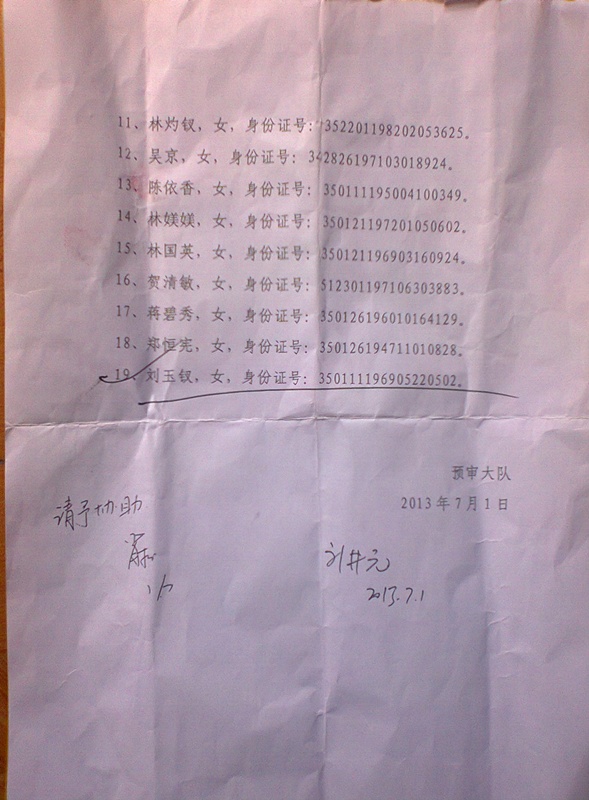 11、林灼钗，女，身份证号：352201198202053625。
12、吴京，女，身份证号：342826197103018924。
13、陈依香，女，身份证号：350111195004100349。
14、林媄媄，女，身份证号：350121197201050602。
15、林国英，女，身份证号：350121196903160924。
16、贺清敏，女，身份证号：512301197106303883。
17、蒋碧秀，女，身份证号：350126196010164129。
18、郑恒宪，女，身份证号：350126194711010828。
19、刘玉钗，女，身份证号：350111196905220502。
预审大队
2013年7月1日
请予协助
刘井元
1/7
2013.7.1